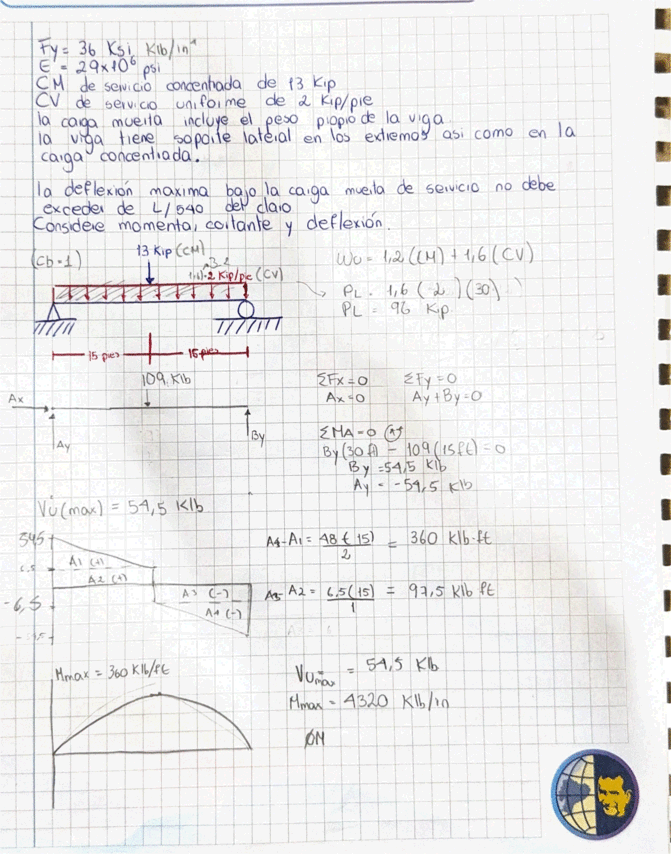 Fy = 36 Ksi, Klb/in²
E = 29x10⁶ psi
CM de servicio concentrada de 13 Kip
CV de servicio uniforme de 2 Kip/pie
la carga muerta incluye el peso propio de la viga.
la viga tiene soporte lateral en los extremos asi como en la
carga concentrada.
la deflexión maxima bajo la carga muerta de servicio no debe
exceder de L/540 del claro
Considere momento, cortante y deflexión.
(Cb=1)
13 Kip (CM)
2 Kip/pie (CV)
Wu = 1,2 (CM) + 1,6 (CV)
PL = 1,6 ( 2 ) (30)
PL = 96 Kip
15 pies
15 pies
109 Klb
Ax
Ay
By
ΣFx=0 ΣFy=0
Ax=0 Ay+By=0
ΣMA=0
By(30ft) - 109 (15ft) = 0
By = 54,5 Klb
Ay = -54,5 Klb
Vu(max) = 54,5 Klb
545
6,5
A1 (+)
A2 (+)
-6,5
A3 (-)
A4 (-)
A4-A1 = 48 ( 15) / 2 = 360 Klb-ft
A3- A2 = 6,5(15) / 1 = 97,5 Klb ft
Mmax = 360 Klb/ft
Vumax = 54,5 Klb
Mmax = 4320 Klb/in
ØM